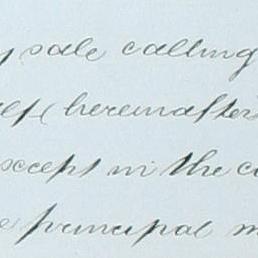 sale calling
(hereinafter
except in the
principal